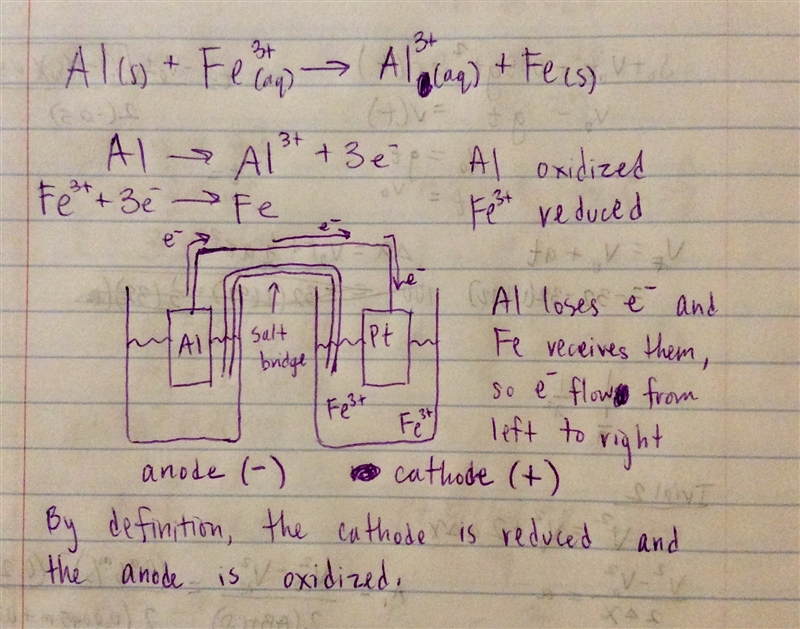 Al(s) + Fe³⁺(aq) → Al³⁺(aq) + Fe(s)
Al → Al³⁺ + 3e⁻ Al oxidized
Fe³⁺ + 3e⁻ → Fe Fe³⁺ reduced
e⁻ e⁻
e⁻
Al salt bridge Pt
Fe³⁺ Fe³⁺
Al loses e⁻ and
Fe receives them,
so e⁻ flow from
left to right
anode (-) cathode (+)
By definition, the cathode is reduced and
the anode is oxidized.